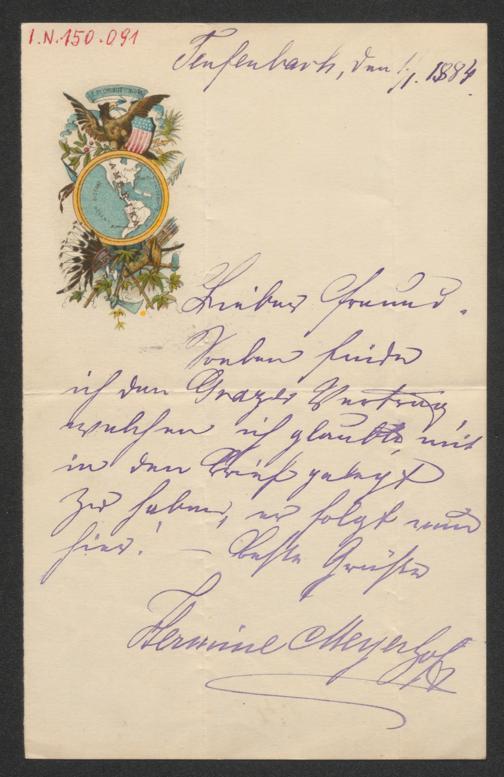 I.N. 150.091
Teufenbach, den 1/1. 1884.
E PLURIBUS UNUM
AMERICA
Lieber Freund.
Soeben finde
ich den Grazer Vertrag,
welchen ich glaubte, mit
in den Brief gelegt
zu haben, er folgt nun
hier! – Beste Grüße
Hermine Meyerhoff